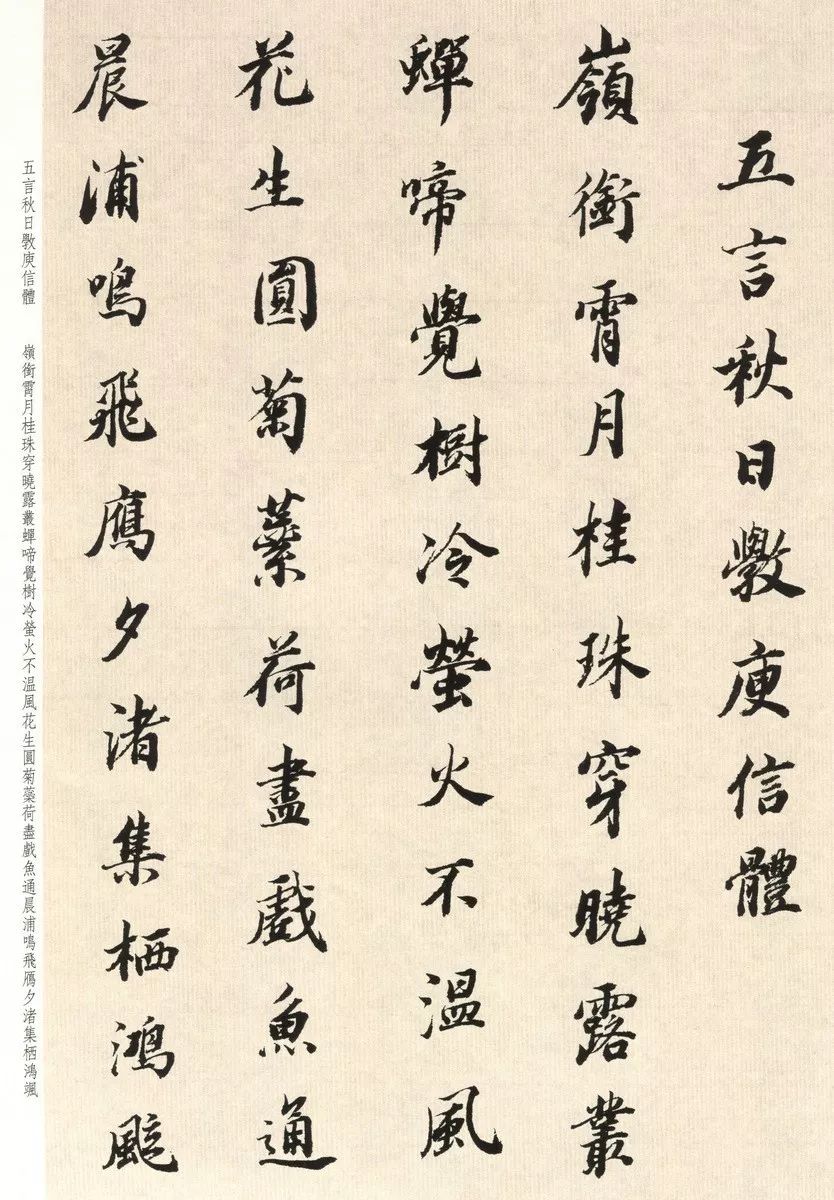 五言秋日斅庾信體
嶺銜霄月桂珠穿曉露叢
蟬啼覺樹冷螢火不温風
花生圓菊蘂荷盡戲魚通
晨浦鳴飛鴈夕渚集栖鴻颯
五言秋日斅庾信體　嶺銜霄月桂珠穿曉露叢蟬啼覺樹冷螢火不温風花生圓菊蘂荷盡戲魚通晨浦鳴飛鴈夕渚集栖鴻颯